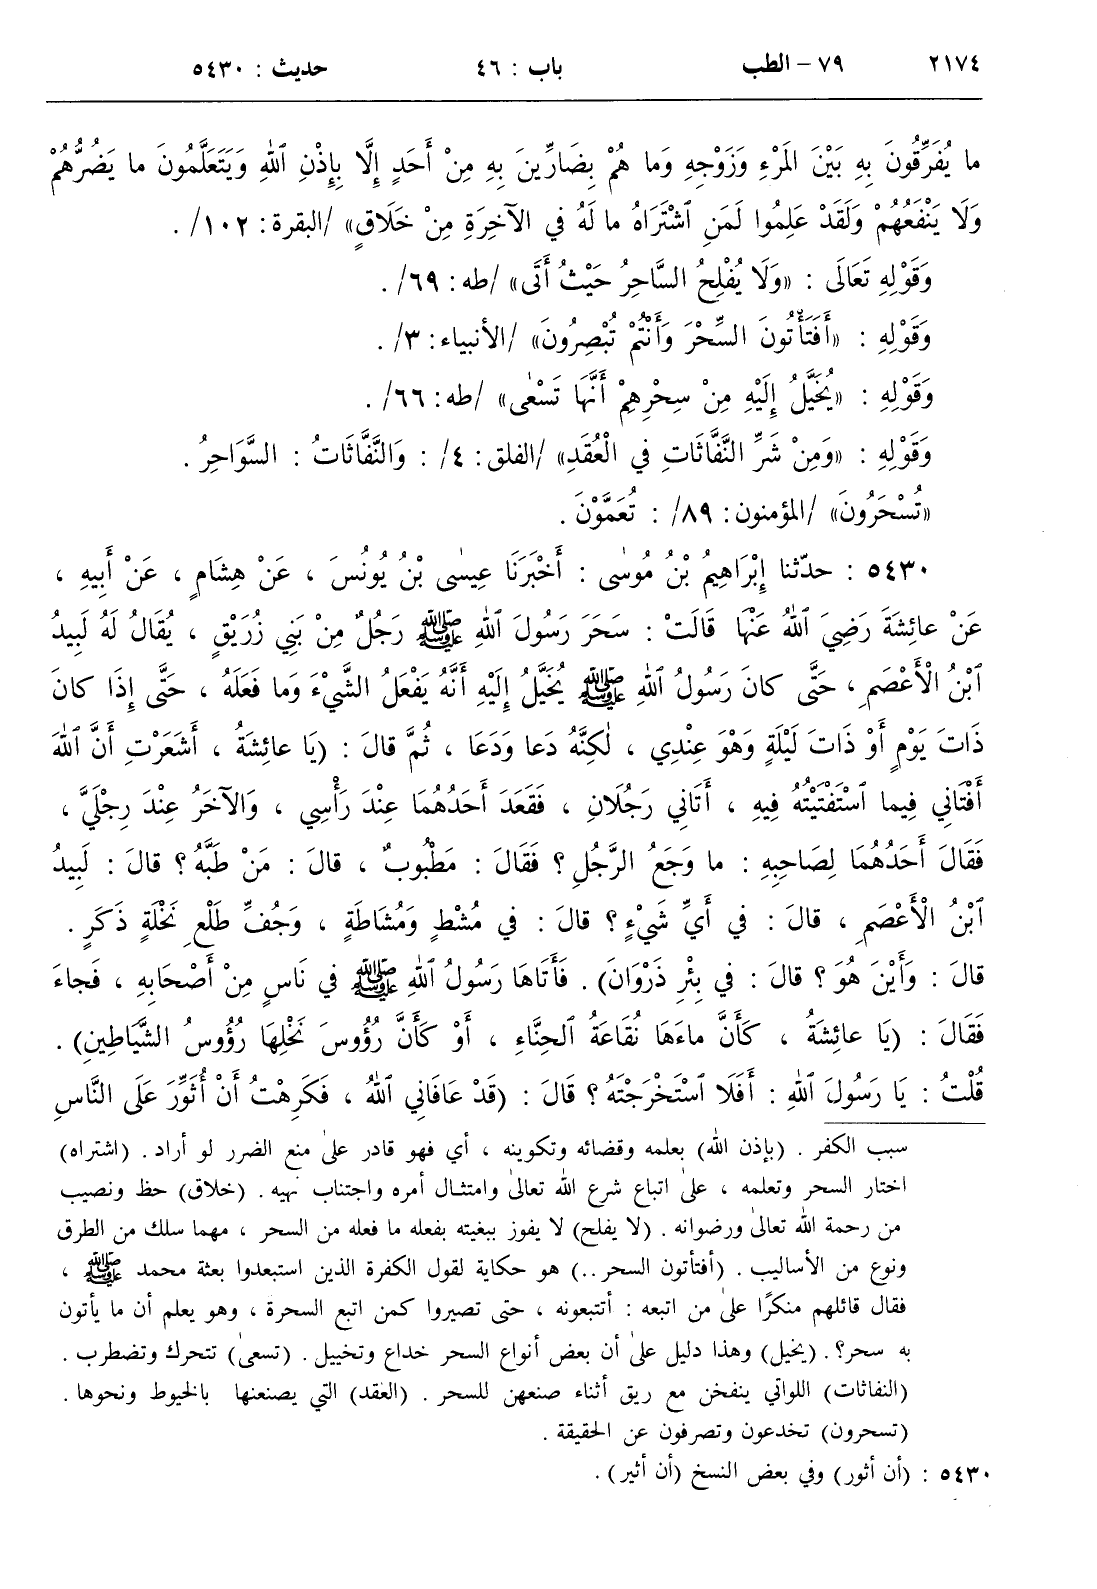 ٢١٧٤ ٧٩ - الطب باب : ٤٦ حديث : ٥٤٣٠
ما يُفَرِّقُونَ بِهِ بَيْنَ المَرْءِ وَزَوْجِهِ وَما هُمْ بِضَارِّينَ بِهِ مِنْ أَحَدٍ إِلَّا بِإِذْنِ ٱللهِ وَيَتَعَلَّمُونَ ما يَضُرُّهُمْ
وَلَا يَنْفَعُهُمْ وَلَقَدْ عَلِمُوا لَمَنِ ٱشْتَرَاهُ ما لَهُ في الآخِرَةِ مِنْ خَلَاقٍ» /البقرة: ١٠٢/ .
وَقَوْلِهِ تَعَالَى : «وَلَا يُفْلِحُ السَّاحِرُ حَيْثُ أَتَى» /طه: ٦٩/ .
وَقَوْلِهِ : «أَفَتَأْتُونَ السِّحْرَ وَأَنْتُمْ تُبْصِرُونَ» /الأنبياء: ٣/ .
وَقَوْلِهِ : «يُخَيَّلُ إِلَيْهِ مِنْ سِحْرِهِمْ أَنَّهَا تَسْعٰى» /طه: ٦٦/ .
وَقَوْلِهِ : «وَمِنْ شَرِّ النَّفَّاثَاتِ في الْعُقَدِ» /الفلق: ٤/ : وَالنَّفَّاثَاتُ : السَّوَاحِرُ .
«تُسْحَرُونَ» /المؤمنون: ٨٩/ : تُعَمَّوْنَ .
٥٤٣٠ : حدّثنا إِبْرَاهِيمُ بْنُ مُوسٰى : أَخْبَرَنَا عِيسٰى بْنُ يُونُسَ ، عَنْ هِشَامٍ ، عَنْ أَبِيهِ ،
عَنْ عائِشَةَ رَضِيَ ٱللهُ عَنْهَا قَالَتْ : سَحَرَ رَسُولَ ٱللهِ ﷺ رَجُلٌ مِنْ بَنِي زُرَيْقٍ ، يُقَالُ لَهُ لَبِيدُ
ٱبْنُ الْأَعْصَمِ ، حَتَّى كانَ رَسُولُ ٱللهِ ﷺ يُخَيَّلُ إِلَيْهِ أَنَّهُ يَفْعَلُ الشَّيْءَ وَما فَعَلَهُ ، حَتَّى إِذَا كانَ
ذَاتَ يَوْمٍ أَوْ ذَاتَ لَيْلَةٍ وَهْوَ عِنْدِي ، لٰكِنَّهُ دَعا وَدَعَا ، ثُمَّ قالَ : (يَا عائِشَةُ ، أَشَعَرْتِ أَنَّ ٱللهَ
أَفْتَانِي فِيما ٱسْتَفْتَيْتُهُ فِيهِ ، أَتَانِي رَجُلَانِ ، فَقَعَدَ أَحَدُهُمَا عِنْدَ رَأْسِي ، وَالآخَرُ عِنْدَ رِجْلَيَّ ،
فَقَالَ أَحَدُهُمَا لِصَاحِبِهِ : ما وَجَعُ الرَّجُلِ ؟ فَقَالَ : مَطْبُوبٌ ، قالَ : مَنْ طَبَّهُ ؟ قالَ : لَبِيدُ
ٱبْنُ الْأَعْصَمِ ، قالَ : في أَيِّ شَيْءٍ ؟ قالَ : في مُشْطٍ وَمُشَاطَةٍ ، وَجُفِّ طَلْعِ نَخْلَةٍ ذَكَرٍ .
قالَ : وَأَيْنَ هُوَ ؟ قالَ : في بِئْرِ ذَرْوَانَ) . فَأَتَاهَا رَسُولُ ٱللهِ ﷺ في نَاسٍ مِنْ أَصْحَابِهِ ، فَجاءَ
فَقَالَ : (يَا عائِشَةُ ، كَأَنَّ ماءَهَا نُقَاعَةُ ٱلحِنَّاءِ ، أَوْ كَأَنَّ رُؤُوسَ نَخْلِهَا رُؤُوسُ الشَّيَاطِينِ) .
قُلْتُ : يَا رَسُولَ ٱللهِ : أَفَلَا ٱسْتَخْرَجْتَهُ ؟ قَالَ : (قَدْ عَافَانِي ٱللهُ ، فَكَرِهْتُ أَنْ أُثَوِّرَ عَلَى النَّاسِ
سبب الكفر . (بإذن الله) بعلمه وقضائه وتكوينه ، أي فهو قادر علىٰ منع الضرر لو أراد . (اشتراه)
اختار السحر وتعلمه ، علىٰ اتباع شرع الله تعالىٰ وامتثال أمره واجتناب نهيه . (خلاق) حظ ونصيب
من رحمة الله تعالىٰ ورضوانه . (لا يفلح) لا يفوز ببغيته بفعله ما فعله من السحر ، مهما سلك من الطرق
ونوع من الأساليب . (أفتأتون السحر ..) هو حكاية لقول الكفرة الذين استبعدوا بعثة محمد ﷺ ،
فقال قائلهم منكرًا علىٰ من اتبعه : أتتبعونه ، حتى تصيروا كمن اتبع السحرة ، وهو يعلم أن ما يأتون
به سحر؟ . (يخيل) وهذا دليل علىٰ أن بعض أنواع السحر خداع وتخييل . (تسعىٰ) تتحرك وتضطرب .
(النفاثات) اللواتي ينفخن مع ريق أثناء صنعهن للسحر . (العقد) التي يصنعنها بالخيوط ونحوها .
(تسحرون) تخدعون وتصرفون عن الحقيقة .
٥٤٣٠ : (أن أثور) وفي بعض النسخ (أن أثير) .